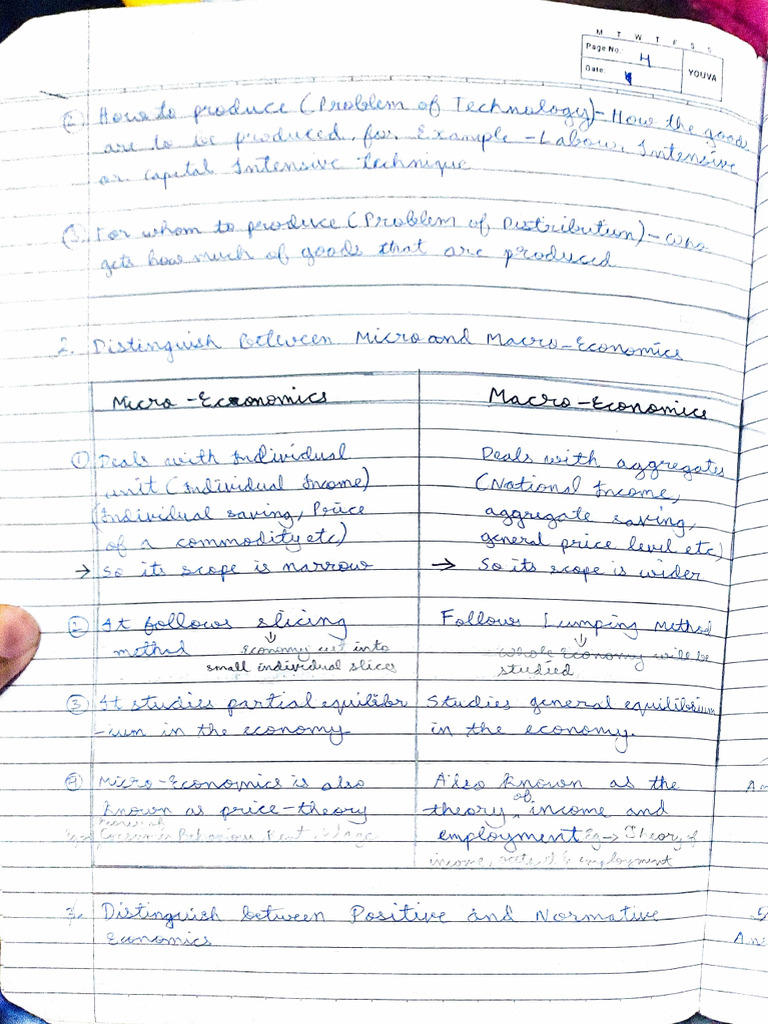 M T W T F S S
Page No. 4
Date:
YOUVA
② How to produce (Problem of Technology) - How the goods
are to be produced. for Example - Labour Intensive
or capital Intensive technique
③. For whom to produce (Problem of Distribution) - who
gets how much of goods that are produced
2. Distinguish between Micro and Macro-Economics
Micro-Economics Macro-Economics
① Deals with Individual Deals with aggregates
unit (Individual Income) (National Income,
(Individual saving, Price aggregate saving,
of a commodity etc) general price level etc)
→ So its scope is narrow → So its scope is wider
② It follows slicing Follows Lumping Method
method economy cut into whole Economy will be
small individual slices studied
③ It studies partial equilibr Studies general equilibrium
-ium in the economy in the economy.
④ Micro-Economics is also Also known as the
known as price-theory theory of income and
Behaviour, Rent employment Eg → Theory of
income, & employment
3. Distinguish between Positive and Normative
Economics